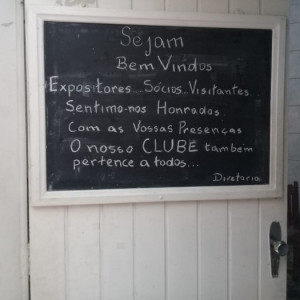 Sejam
Bem Vindos
Expositores... Sócios... Visitantes...
Sentimo-nos Honrados
Com as Vossas Presenças
O nosso CLUBE também
pertence a todos...
Diretoria